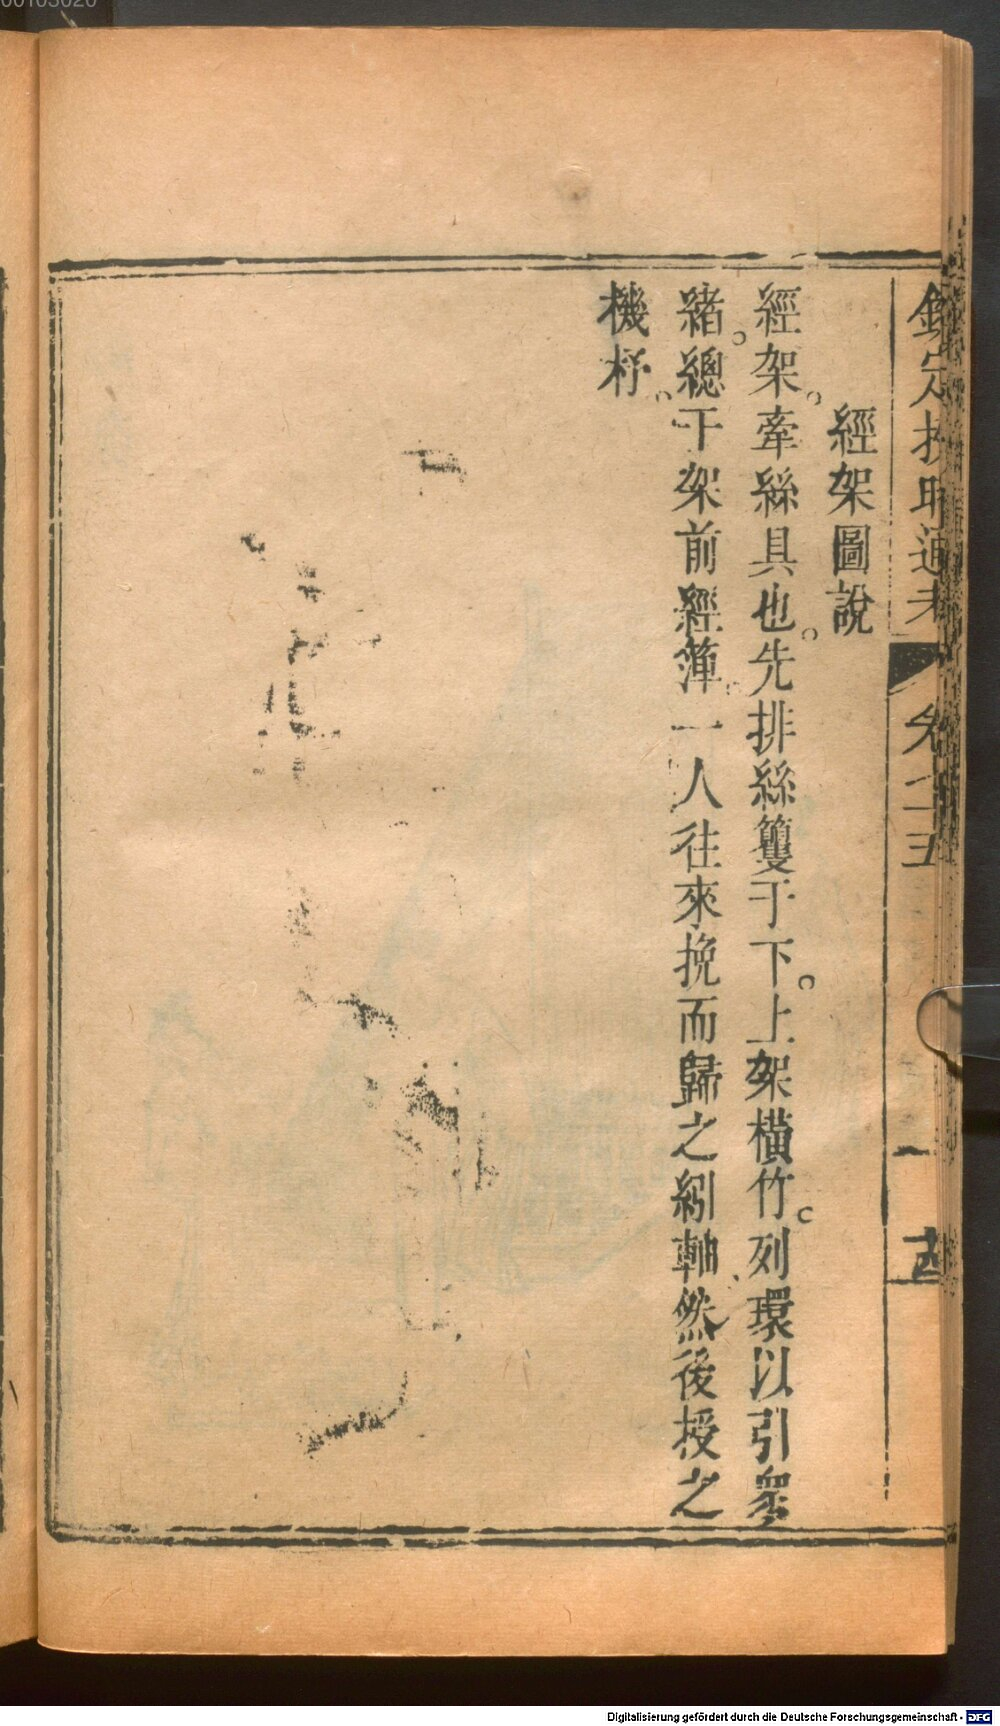 欽定授時通考 卷七十五 一 苗
經架圖說
經架。牽絲具也。先排絲籰于下。上架橫竹。列環以引衆
緒。總于架前經簰。一人往來挽而歸之紖軸。然後授之
機杼。
Digitalisierung gefördert durch die Deutsche Forschungsgemeinschaft - DFG